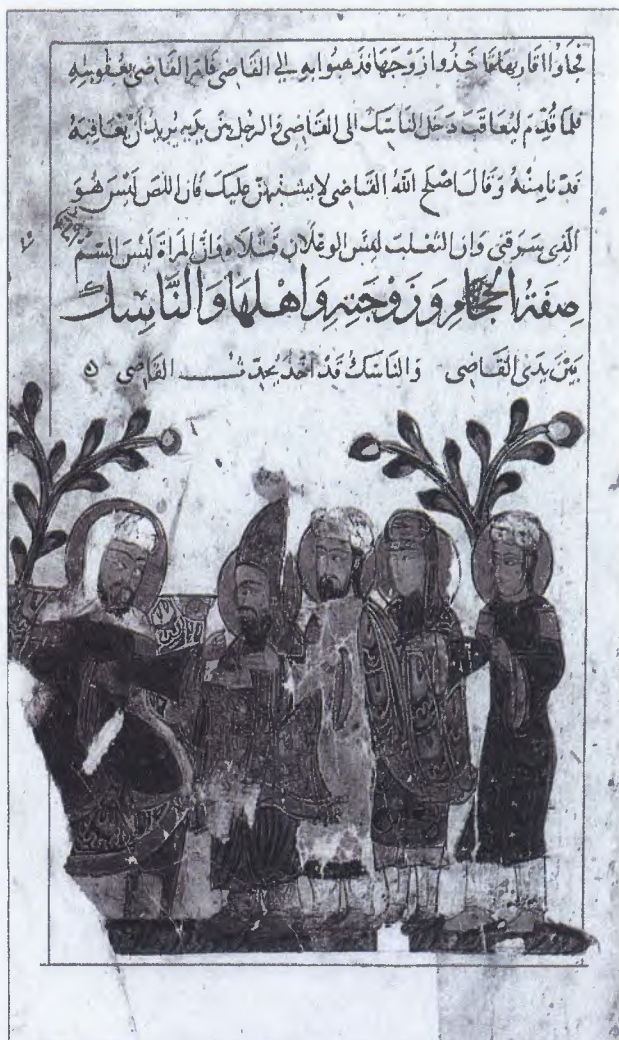 فجاؤا اقاربها فاخذوا زوجها فذهبوا به الي القاضي فامر القاضي بعقوبته
فلما قُدّم ليُعاقَب دَخل الناسك الى القاضي والرجل بين يديه يريد ان يعاقبه
فدنا منه وَقال اصلح الله القاضي لا يشتبهن عليك فان اللص ليس هو
الذي سرقني وان الثعلب ليس الوعلان قتلاه وان المراة ليس السم
صِفَةُ الحجامِ وَزَوْجَتِهِ وَاهلها وَالنَّاسِك
بين يدى القاضي والناسك قد اخذ يحدّث القاضي